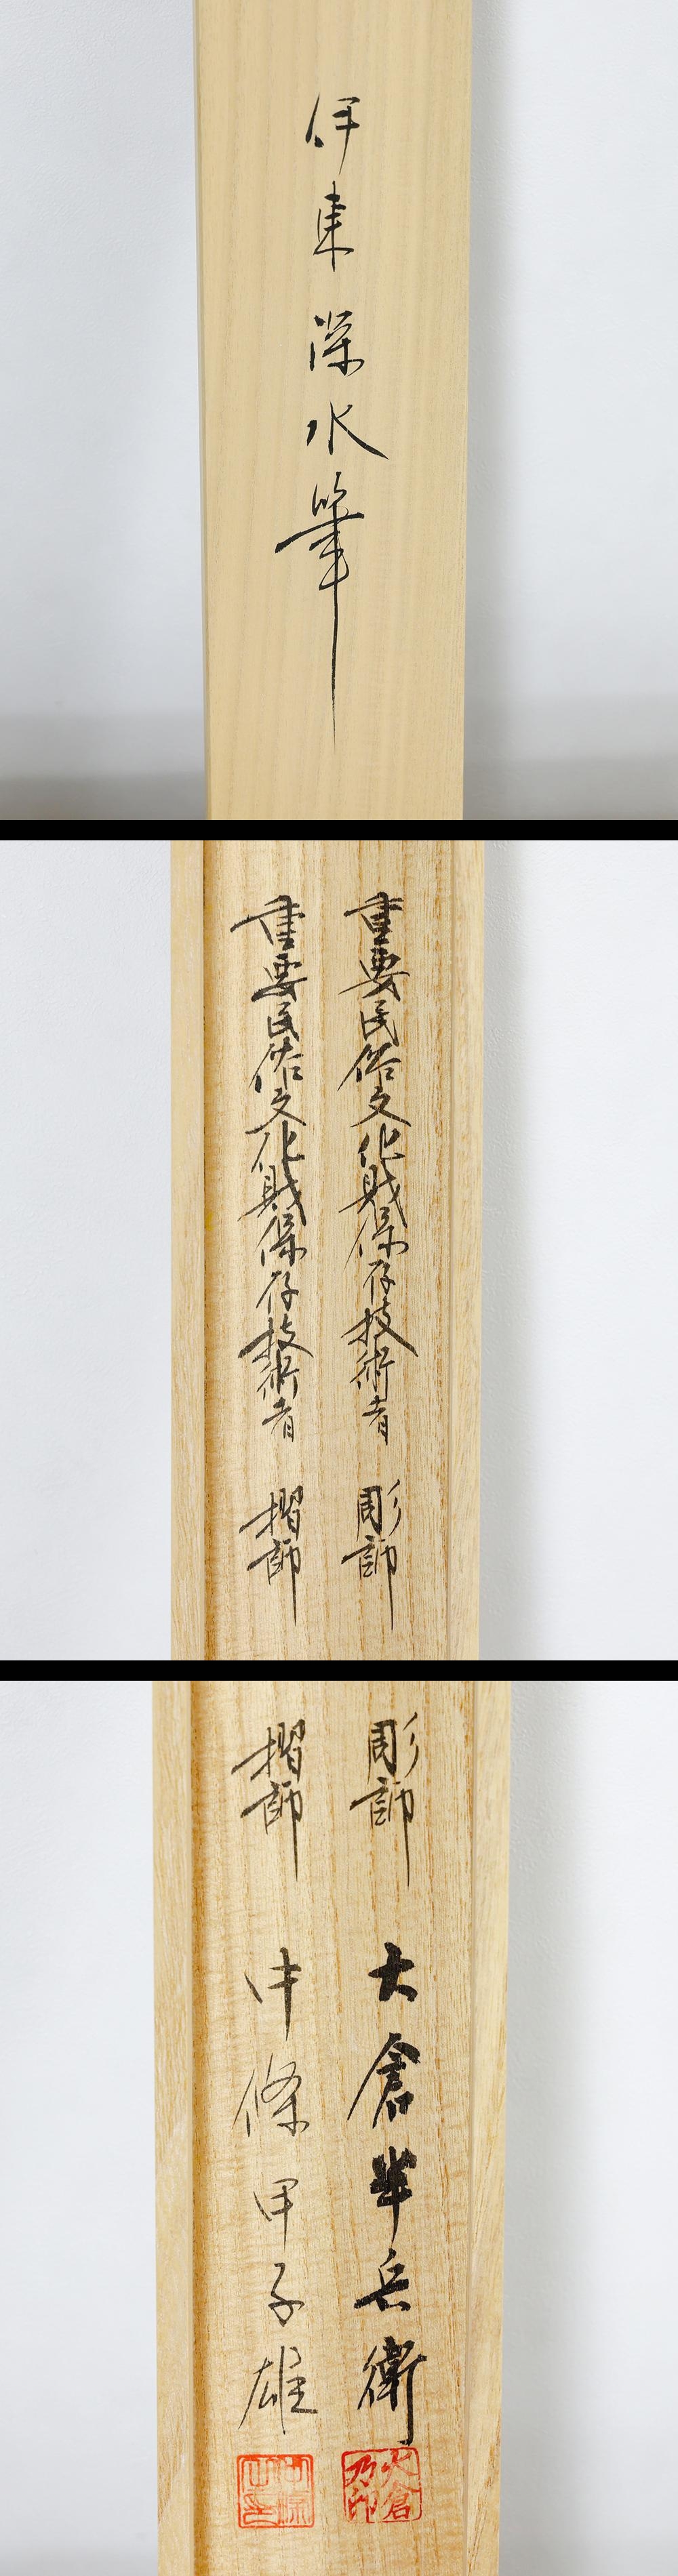 伊東深水筆
重要民俗文化財保存技術者 彫師
重要民俗文化財保存技術者 摺師
彫師 大倉半兵衛
大倉乃印
摺師 中條甲子雄
中條之印